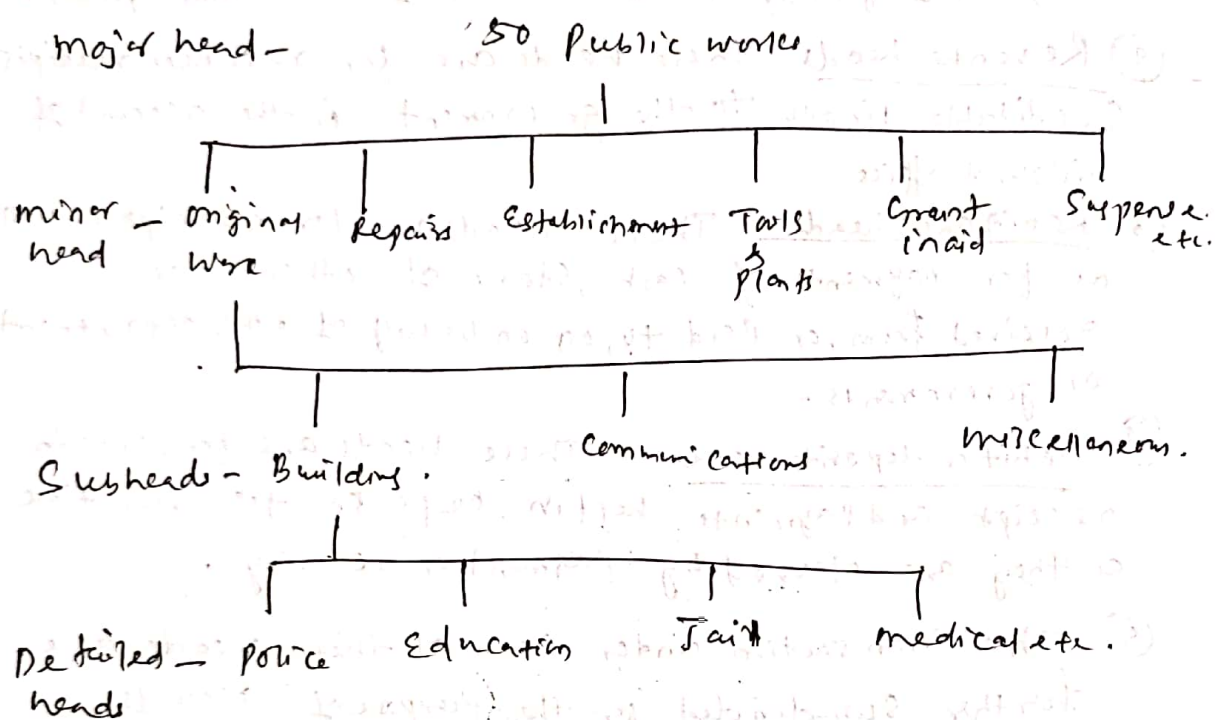 Major head - '50 Public works
minor head - original work Repairs Establishment Tools & plants Grant in aid Suspense. etc.
Subheads - Building. Communications miscellaneous.
Detailed heads - police Education Jail medical etc.